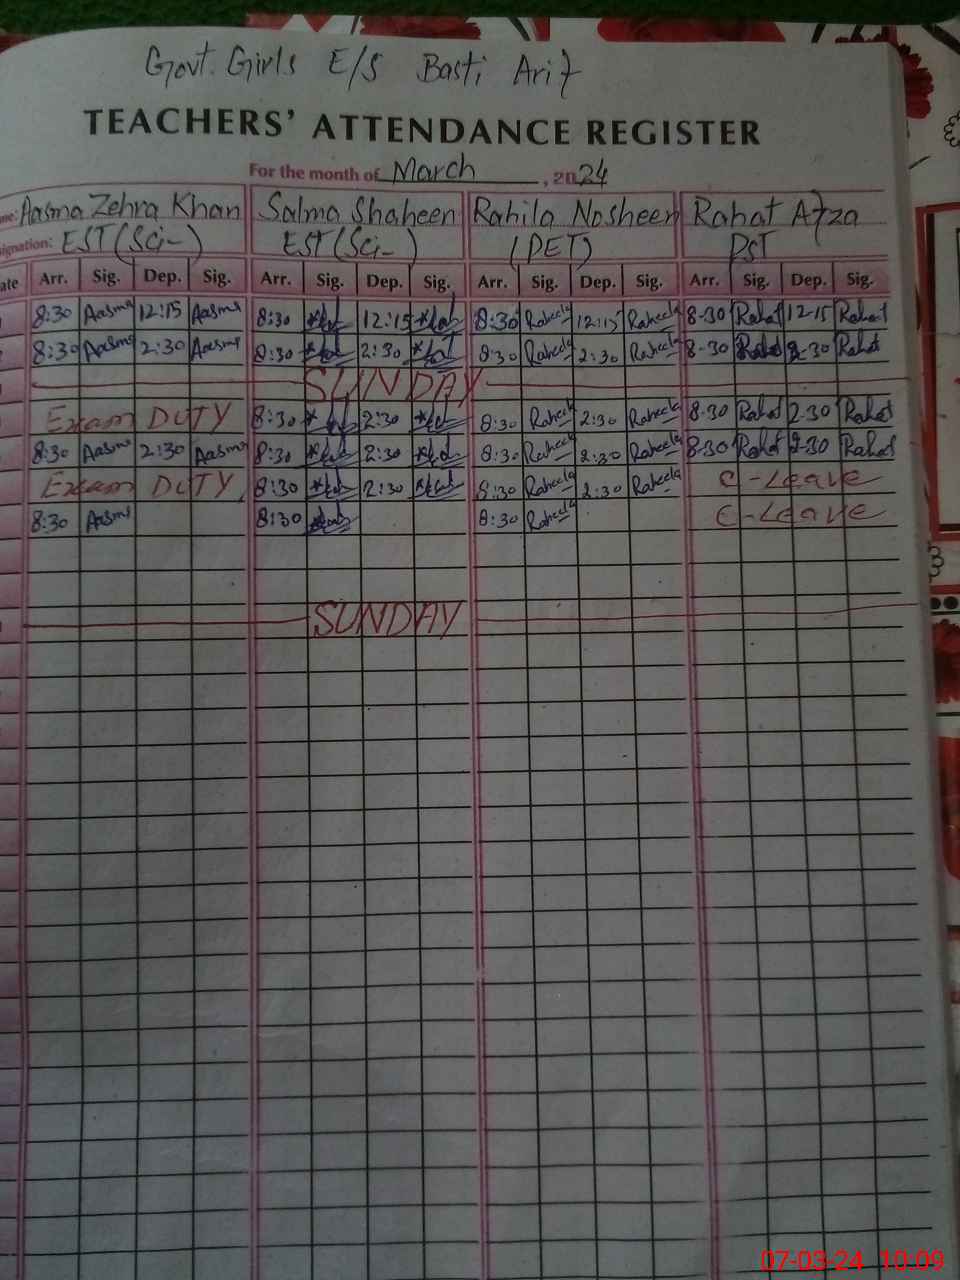 Govt. Girls E/S Basti Arif
TEACHERS' ATTENDANCE REGISTER
For the month of March, 2024
me: Aasma Zehra Khan Salma Shaheen Rahila Nosheen Rahat Afza
signation: EST (Sci-) EST (Sci-) (PET) PST
ate Arr. Sig. Dep. Sig. Arr. Sig. Dep. Sig. Arr. Sig. Dep. Sig. Arr. Sig. Dep. Sig.
8:30 Aasma 12:15 Aasma 8:30 12:15 8:30 Raheela 12:15 Raheela 8-30 Rahat 12-15 Rahat
8:30 Aasma 2:30 Aasma 8:30 2:30 8:30 Raheela 2:30 Raheela 8-30 Rahat 2-30 Rahat
SUNDAY
Exam DUTY 8:30 2:30 8:30 Raheela 2:30 Raheela 8-30 Rahat 2-30 Rahat
8:30 Aasma 2:30 Aasma 8:30 2:30 8:30 Raheela 2:30 Raheela 8-30 Rahat 2-30 Rahat
Exam DUTY 8:30 2:30 8:30 Raheela 2:30 Raheela C-Leave
8:30 Aasma 8:30 8:30 Raheela C-Leave
SUNDAY
07-03-24 10:09